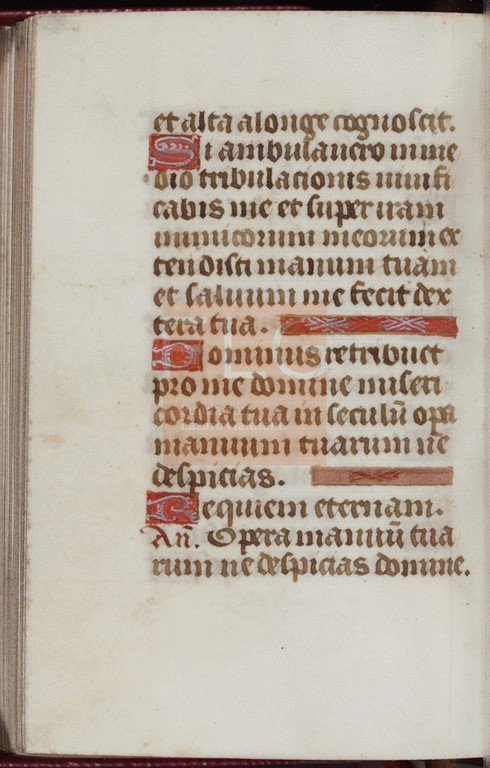 et alta alonge cognoscit.
Si ambulauero in me
dio tribulacionis uiuifi
cabis me et super iram
inimicorum meorum ex
tendisti manum tuam
et saluum me fecit dex
tera tua.
Dominus retribuet
pro me domine miseri
cordia tua in seculū opa
manuum tuarum ne
despicias.
Requiem eternam.
An̄. Opera manuū tua
rum ne despicias domine.